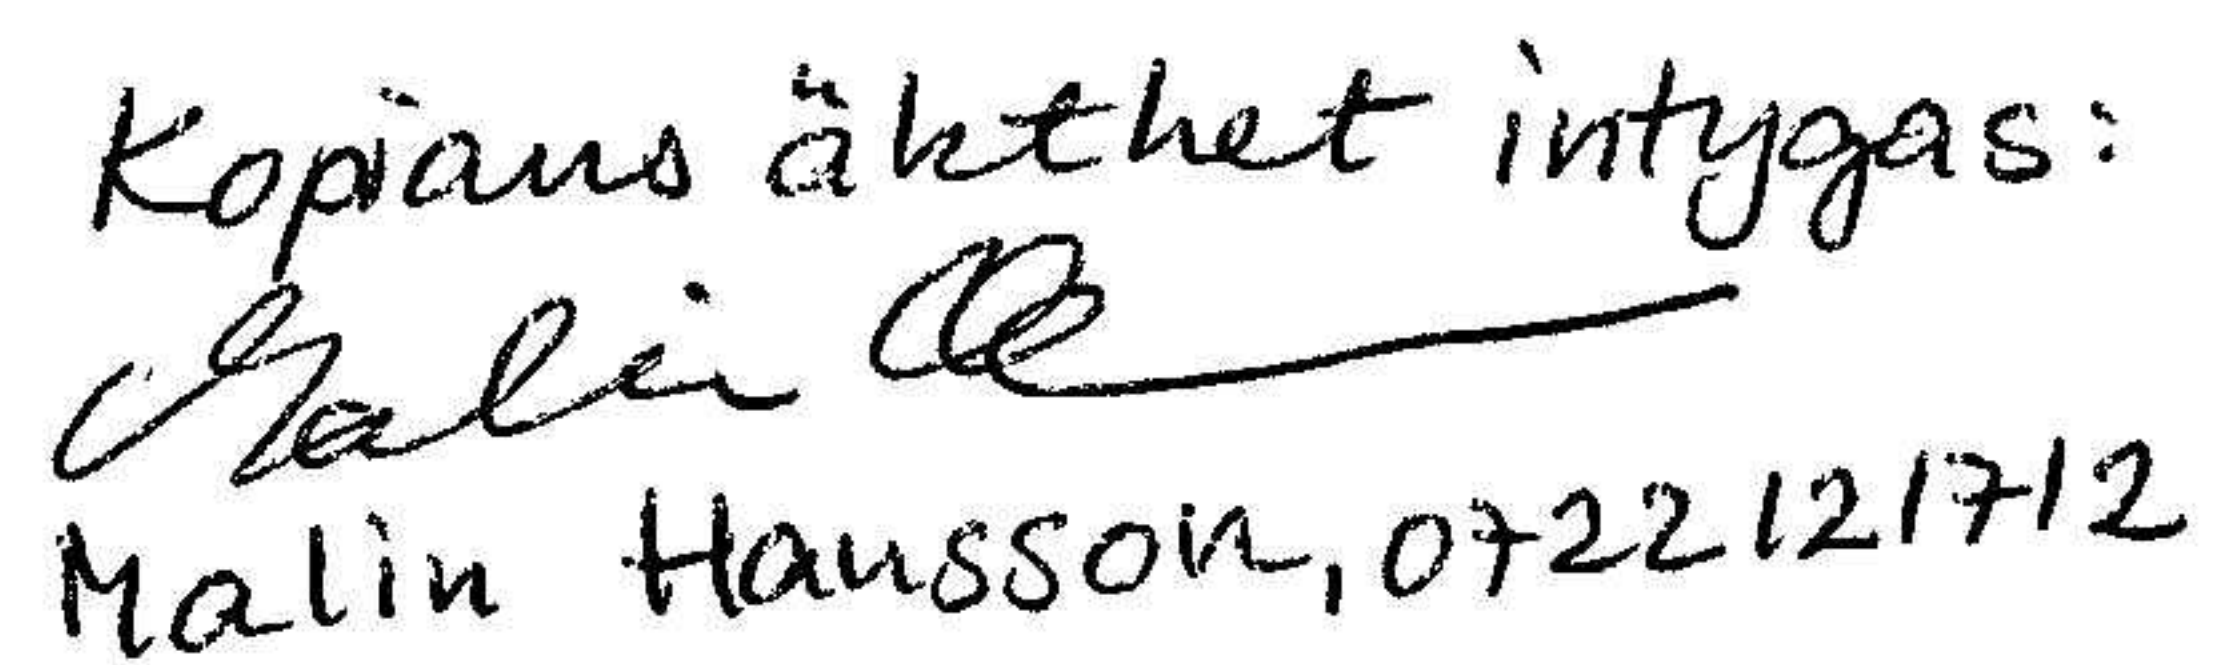 Kopians äkthet intygas:
Malin
Malin Hansson, 0722121712